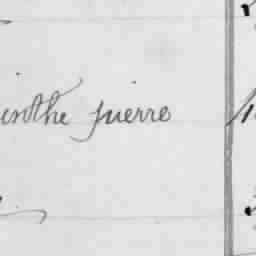 inthe pierre